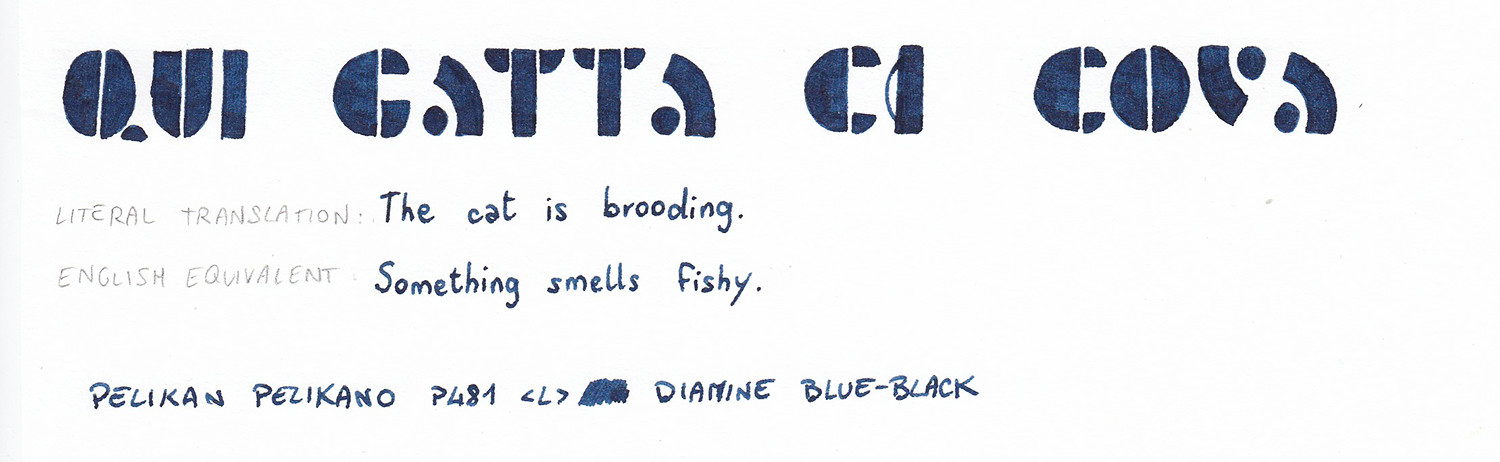 QUI GATTA CI COVA
LITERAL TRANSLATION: The cat is brooding.
ENGLISH EQUIVALENT: Something smells fishy.
PELIKAN PELIKANO P481 <L> DIAMINE BLUE-BLACK